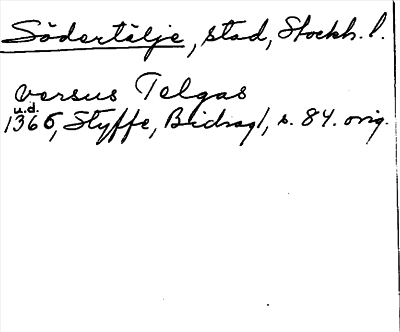 Södertälje, stad, Stockh. l.
versus Telgas
u.d.
1365, Styffe, Bidrag I, s. 84. orig.